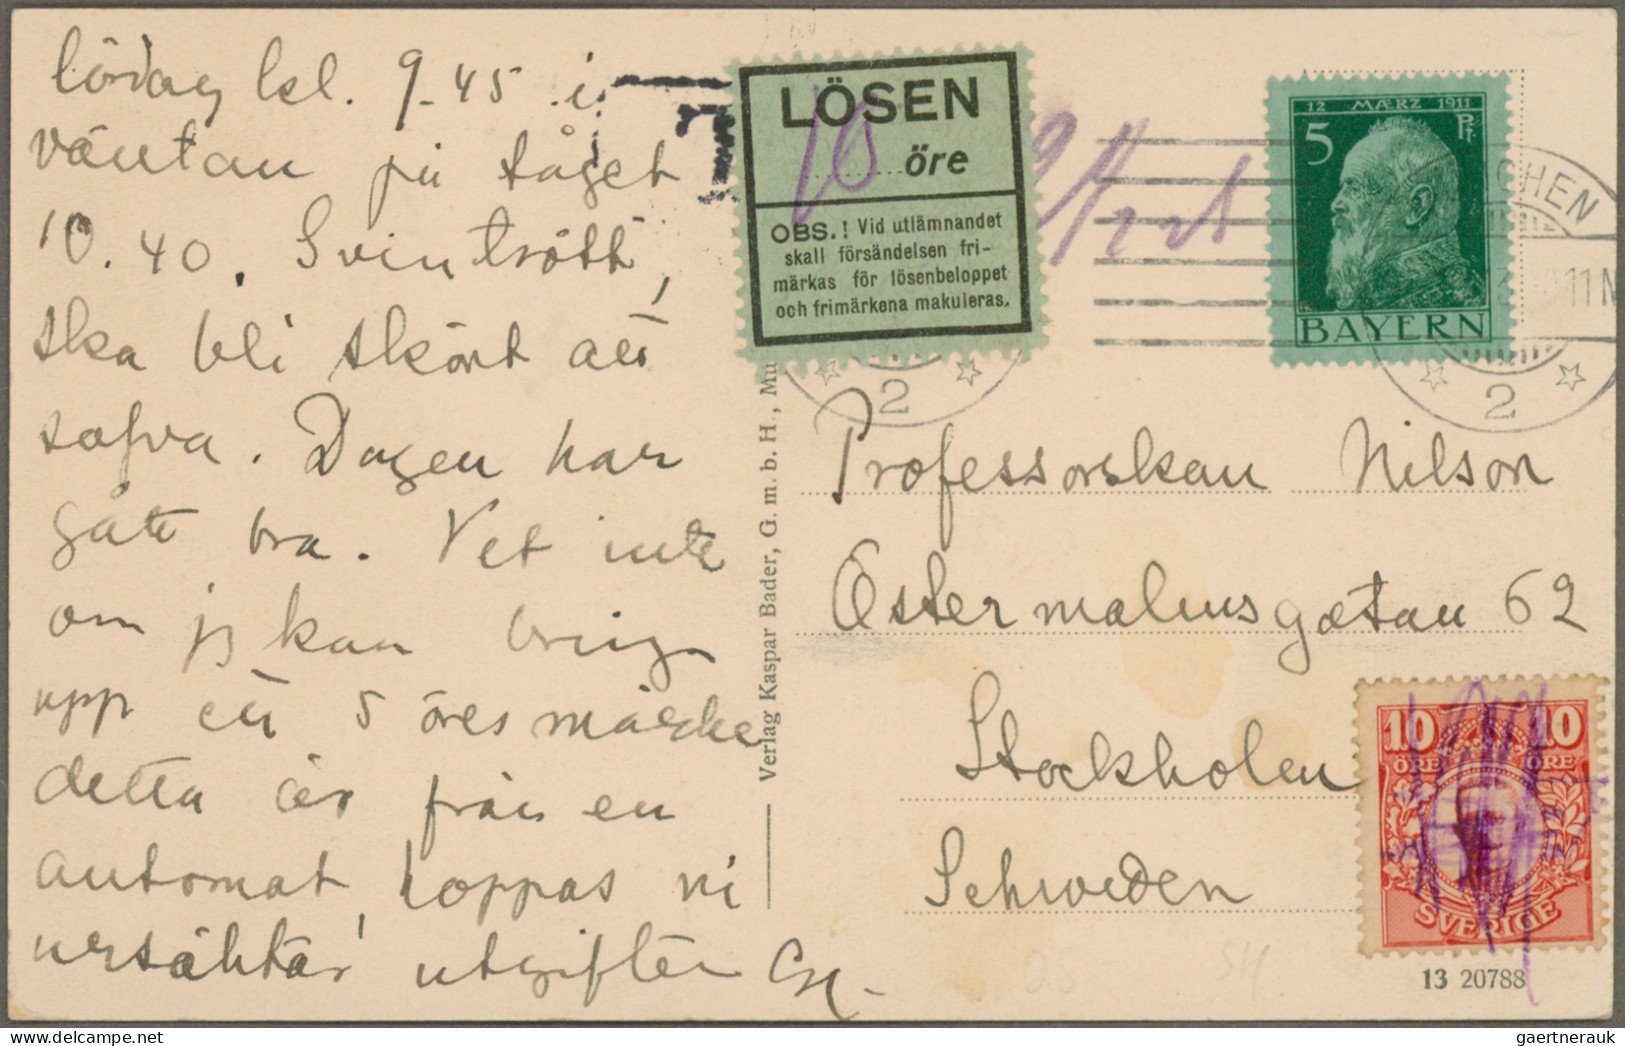 lördag kl. 9-45 i
väntan på tåget
10.40. Svintrött,
ska bli skönt att
sofva. Dagen har
gått bra. Vet inte
om jg kan bringa
upp ett 5 öres märke
detta är från en
automat, hoppas ni
ursäktar utgiften
LÖSEN
10 öre
OBS.! Vid utlämnandet
skall försändelsen fri-
märkas för lösenbeloppet
och frimärkena makuleras.
T
12 MÆRZ 1911
5 Pf.
BAYERN
CHEN
11
2
2
Verlag Kaspar Bader, G. m. b. H., Mü
Professorskan Nilson
Östermalmsgatan 62
Stockholm
Schweden
10 10
ÖRE ÖRE
SVERIGE
13 20788
gaertnerauk